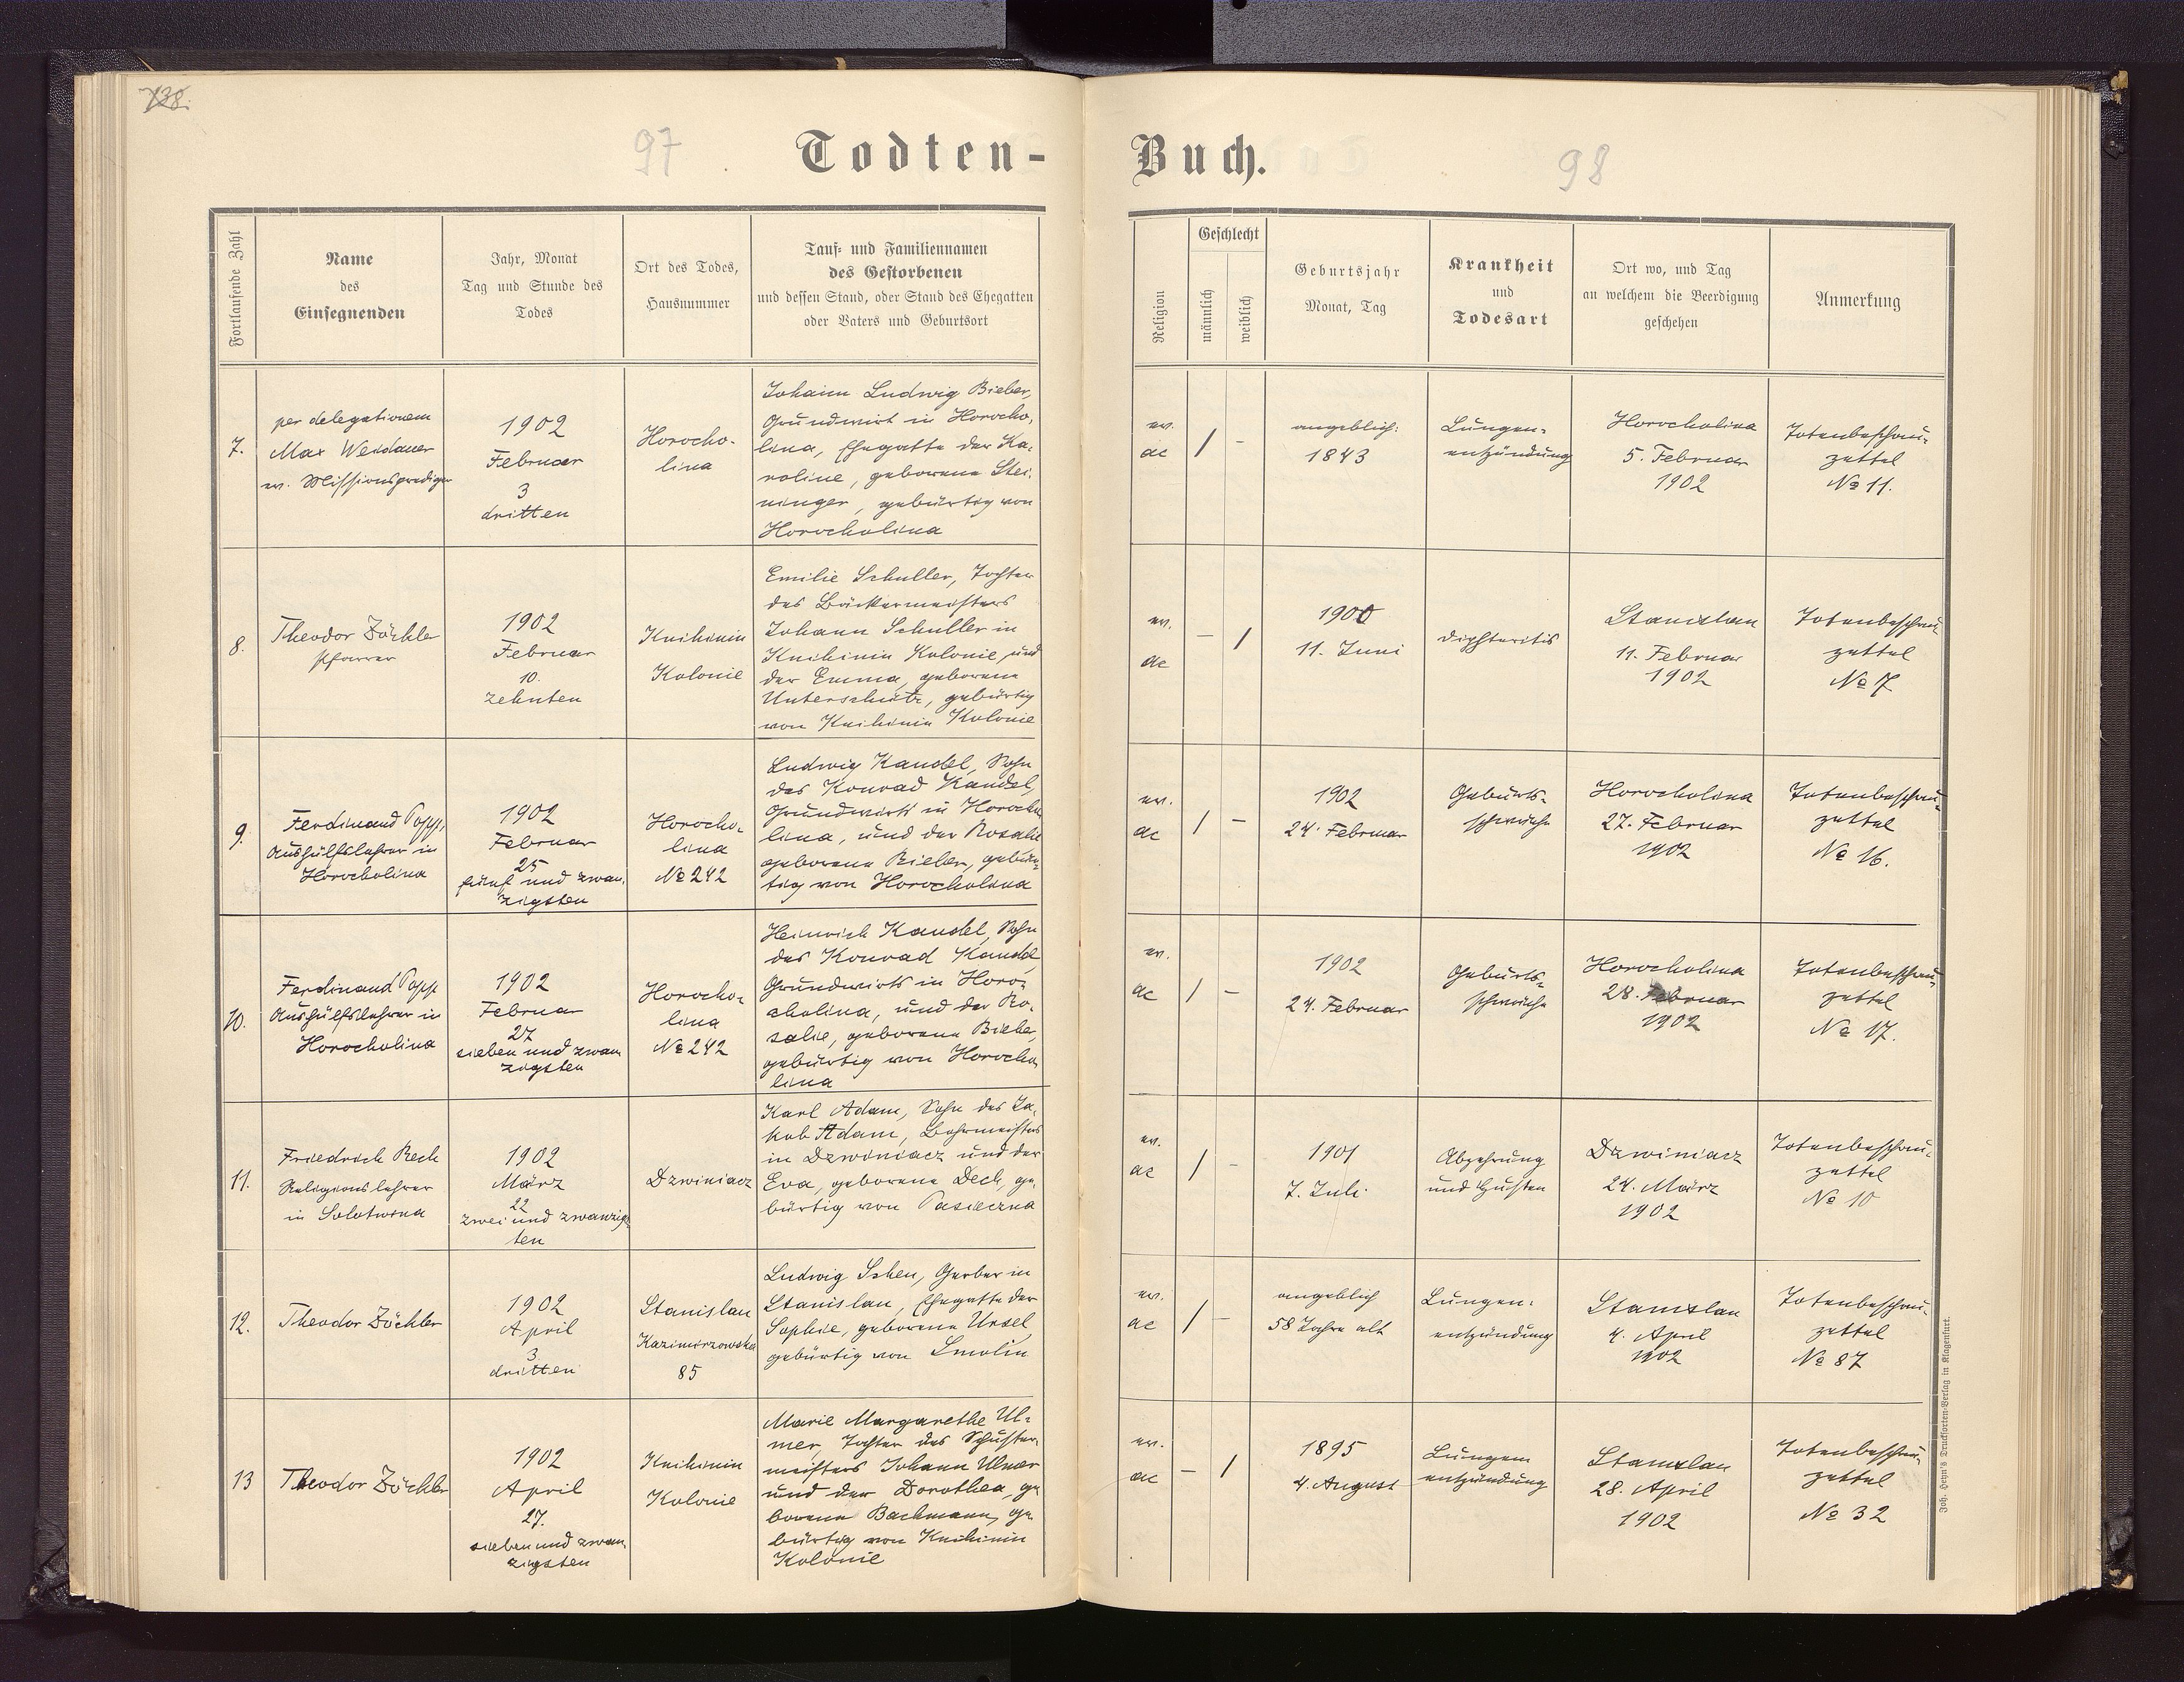 138.
97
Todten-
Buch.
98
Fortlaufende Zahl
Name
des
Einsegnenden
Jahr, Monat
Tag und Stunde des
Todes
Ort des Todes,
Hausnummer
Tauf- und Familiennamen
des Gestorbenen
und dessen Stand, oder Stand des Ehegatten
oder Vaters und Geburtsort
Religion
Geschlecht
männlich
weiblich
Geburtsjahr
Monat, Tag
Krankheit
und
Todesart
Ort wo, und Tag
an welchem die Beerdigung
geschehen
Anmerkung
7.
per delegationem
Max Weidauer
ev. Missionsprediger
1902
Februar
3
dritten
Horocho-
lina
Johann Ludwig Bieber,
Grundwirt in Horocho-
lina, Ehegatte der Ka-
roline, geborene Stei-
ninger, gebürtig von
Horocholina
ev.
ac
/ -
angeblich:
1843
Lungen-
entzündung
Horocholina
5. Februar
1902
Totenbeschau-
zettel
№ 11.
8.
Theodor Zöckler
Pfarrer
1902
Februar
10.
zehnten
Knihinin
Kolonie
Emilie Schuller, Tochter
des Bäckermeisters
Johann Schuller in
Knihinin Kolonie, und
der Emma, geborene
Unterschütz, gebürtig
von Knihinin Kolonie
ev.
ac
- /
1900
11. Juni
Diphteritis
Stanislau
11. Februar
1902
Totenbeschau-
zettel
№ 7
9.
Ferdinand Popp,
Aushülfslehrer in
Horocholina
1902
Februar
25
fünf und zwan-
zigsten
Horocho-
lina
№ 242
Ludwig Kandel, Sohn
des Konrad Kandel,
Grundwirts in Horocho-
lina, und der Rosalie
geborene Bieber, gebür-
tig von Horocholina
ev.
ac
/ -
1902
24. Februar
Geburts-
schwäche
Horocholina
27. Februar
1902
Totenbeschau-
zettel
№ 16.
10.
Ferdinand Popp
Aushülfslehrer in
Horocholina
1902
Februar
27
sieben und zwan
zigsten
Horocho-
lina
№ 242
Heinrich Kandel, Sohn
des Konrad Kandel
Grundwirts in Horo-
cholina, und der Ro-
salie, geborene Bieber,
gebürtig von Horocho-
lina
ev.
ac
/ -
1902
24. Februar
Geburts-
schwäche
Horocholina
28. Februar
1902
Totenbeschau-
zettel
№ 17.
11.
Friedrich Rech
Religionslehrer
in Solotwina
1902
März
22
zwei und zwanzigs
ten
Dzwiniacz
Karl Adam, Sohn des Ja-
kob Adam, Bohrmeisters
in Dzwiniacz und der
Eva, geborene Dech, ge-
bürtig von Pasieczna
ev.
ac
/ -
1901
7. Juli.
Abzehrung
und Husten
Dzwiniacz
24. März
1902
Totenbeschau-
zettel
№ 10
12.
Theodor Zöckler
1902
April
3.
dritten
Stanislau
Kazimirzowska
85
Ludwig Schen, Gerber in
Stanislau, Ehegatte der
Sophie, geborene Ursel,
gebürtig von Smolin
ev.
ac
/ -
angeblich
58 Jahre alt
Lungen-
entzündung
Stanislau
4. April
1902
Totenbeschau-
zettel
№ 87
13
Theodor Zöckler
1902
April
27.
sieben und zwan
zigsten
Knihinin
Kolonie
Marie Margarethe Ul-
mer, Tochter des Schuster-
meisters Johann Ulmer
und der Dorothea, ge
borene Bachmann, ge-
bürtig von Knihinin
Kolonie
ev.
ac
- /
1895
4. August
Lungen
entzündung
Stanislau
28. April
1902
Totenbeschau-
zettel
№ 32
Joh. Heyn's Drucksorten-Verlag in Klagenfurt.